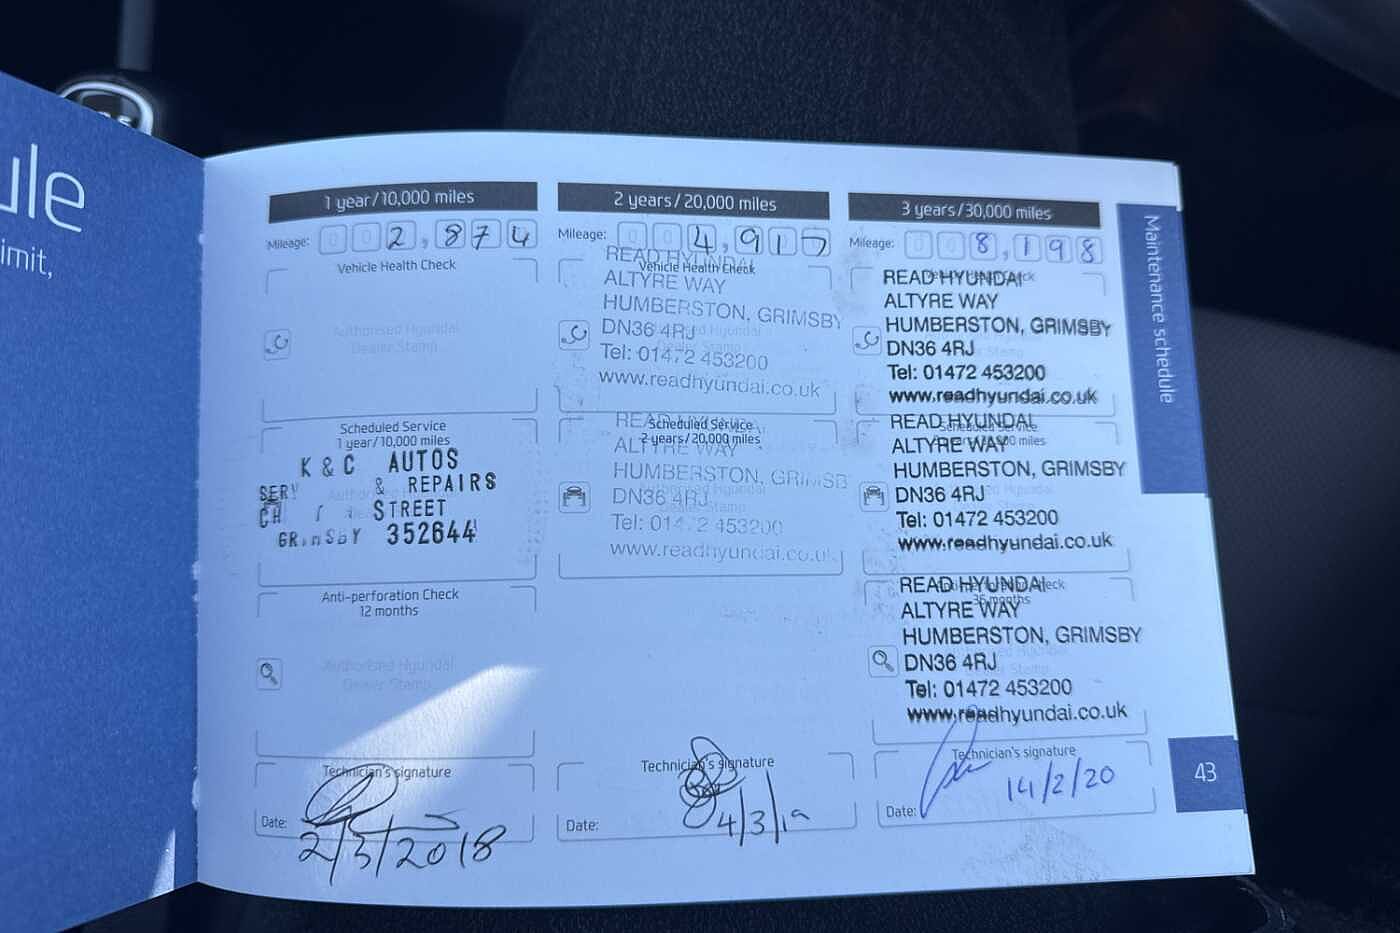 ule
imit,
1 year/10,000 miles
Mileage: 002,874
Vehicle Health Check
Authorised Hyundai
Dealer Stamp
Scheduled Service
1 year/10,000 miles
K & C AUTOS
SERV & REPAIRS
CH STREET
GRIMSBY 352644
Anti-perforation Check
12 months
Authorised Hyundai
Dealer Stamp
Technician's signature
Date: 2/3/2018
2 years/20,000 miles
Mileage: 004,917
Vehicle Health Check
READ HYUNDAI
ALTYRE WAY
HUMBERSTON, GRIMSBY
DN36 4RJ
Tel: 01472 453200
www.readhyundai.co.uk
Scheduled Service
2 years/20,000 miles
READ HYUNDAI
ALTYRE WAY
HUMBERSTON, GRIMSB
DN36 4RJ
Tel: 01472 453200
www.readhyundai.co.uk
Technician's signature
Date: 4/3/19
3 years/30,000 miles
Mileage: 008,198
READ HYUNDAI
ALTYRE WAY
HUMBERSTON, GRIMSBY
DN36 4RJ
Tel: 01472 453200
www.readhyundai.co.uk
READ HYUNDAI
ALTYRE WAY
HUMBERSTON, GRIMSBY
DN36 4RJ
Tel: 01472 453200
www.readhyundai.co.uk
READ HYUNDAI
ALTYRE WAY
36 months
HUMBERSTON, GRIMSBY
DN36 4RJ
Tel: 01472 453200
www.readhyundai.co.uk
Technician's signature
Date: 14/2/20
Maintenance schedule
43